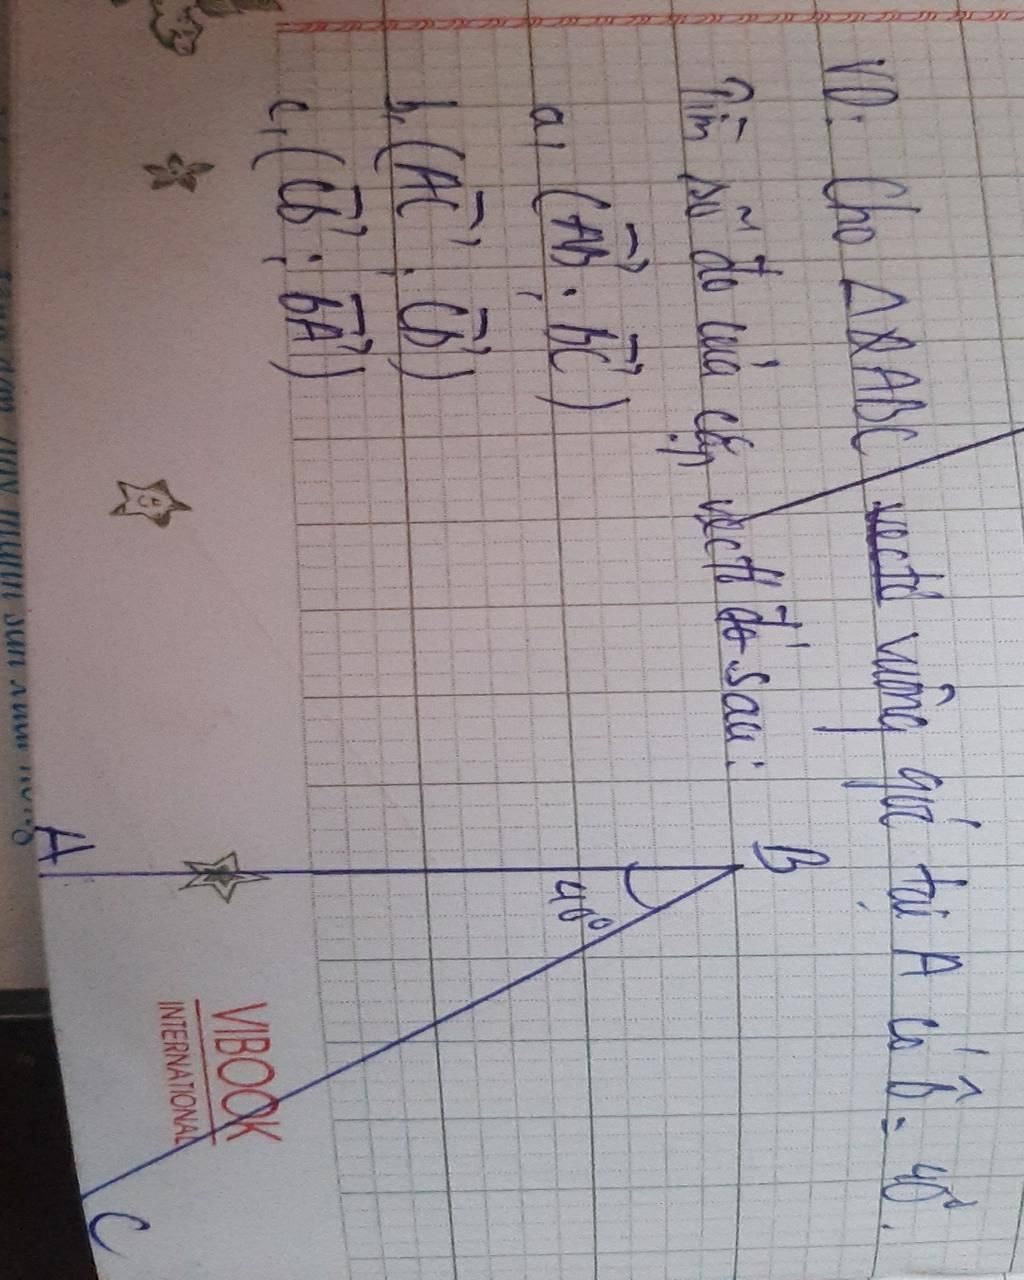 VD: Cho Δ ABC vectơ vuông góc tại A có B̂ = 40°.
Tìm số đo của cặp vectơ đo sau:
a, (AB→; BC→)
b, (AC→; CB→)
c, (CB→; BA→)
B
40°
A
C
VIBOOK
INTERNATIONAL